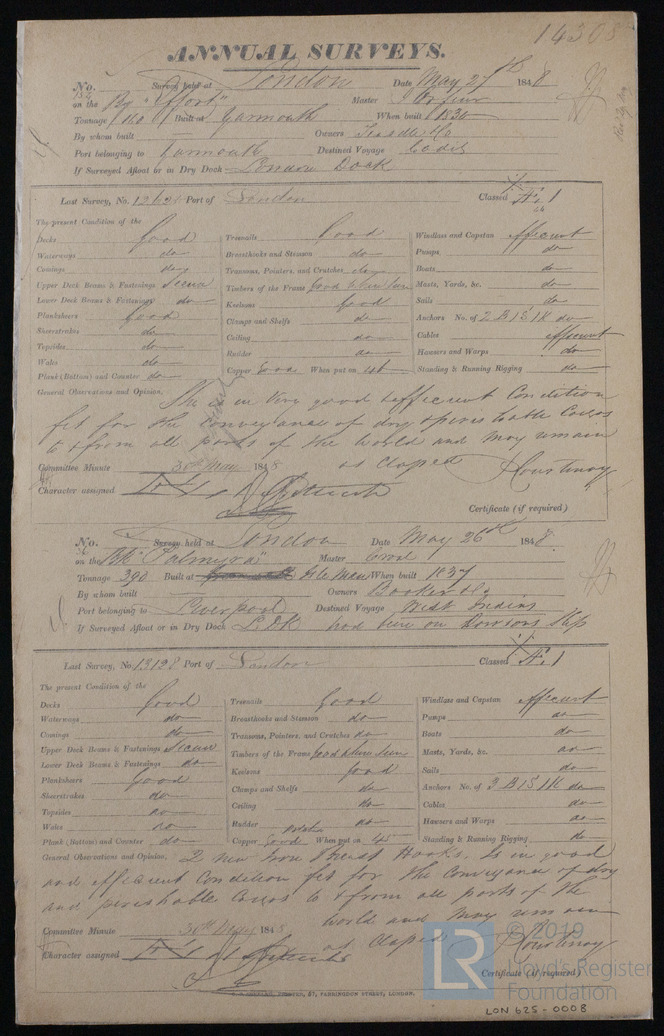 14308
ANNUAL SURVEYS.
No. Survey held at London Date May 27th 1848
on the Bg "Effort" Master
Tonnage 160 Built at Yarmouth When built 1834
By whom built Owners
Port belonging to Yarmouth Destined Voyage Cadiz
If Surveyed Afloat or in Dry Dock London Dock
Last Survey, No. Port of London Classed Æ 1
The present Condition of the
Decks Good Treenails Good Windlass and Capstan efficient
Waterways do Breasthooks and Stemson do Pumps do
Comings do Transoms, Pointers, and Crutches do Boats do
Upper Deck Beams & Fastenings Secure Timbers of the Frame Good where seen Masts, Yards, &c. do
Lower Deck Beams & Fastenings do Keelsons Good Sails do
Planksheers Good Clamps and Shelfs do Anchors No. of 2 B 1 S 1 K do
Sheerstrakes do Ceiling do Cables efficient
Topsides do Rudder do Hawsers and Warps do
Wales do Copper Good When put on Standing & Running Rigging do
Plank (Bottom) and Counter do
General Observations and Opinion, She is in very good & efficient Condition
fit for the conveyance of dry & perishable Cargos
to & from all parts of the World and may remain
as Classed Courtenay
Committee Minute 30th May 1848
Character assigned
Certificate (if required)
No. Survey held at London Date May 26th 1848
on the Bk "Palmyra" Master
Tonnage 390 Built at When built 1837
By whom built Owners Booker & Co
Port belonging to Liverpool Destined Voyage West Indies
If Surveyed Afloat or in Dry Dock L.D.K had been on Slip
Last Survey, No. 13128 Port of London Classed Æ 1
The present Condition of the
Decks Good Treenails Good Windlass and Capstan efficient
Waterways do Breasthooks and Stemson do Pumps do
Comings do Transoms, Pointers, and Crutches do Boats do
Upper Deck Beams & Fastenings Secure Timbers of the Frame Good where seen Masts, Yards, &c. do
Lower Deck Beams & Fastenings do Keelsons Good Sails do
Planksheers Good Clamps and Shelfs do Anchors No. of 3 B 1 S 1 K do
Sheerstrakes do Ceiling do Cables do
Topsides do Rudder do Hawsers and Warps do
Wales do Copper Good When put on 45 Standing & Running Rigging do
Plank (Bottom) and Counter do
General Observations and Opinion, 2 new Iron Breast Hooks. Is in good
and efficient Condition fit for the Conveyance of dry
and perishable Cargos to & from all parts of the
World and may remain
as Classed Courtenay
Committee Minute 30th May 1848
Character assigned
Certificate (if required)
PRINTER, 57, FARRINGDON STREET, LONDON.
LR
© 2019
Lloyd's Register
Foundation
LON 625-0008